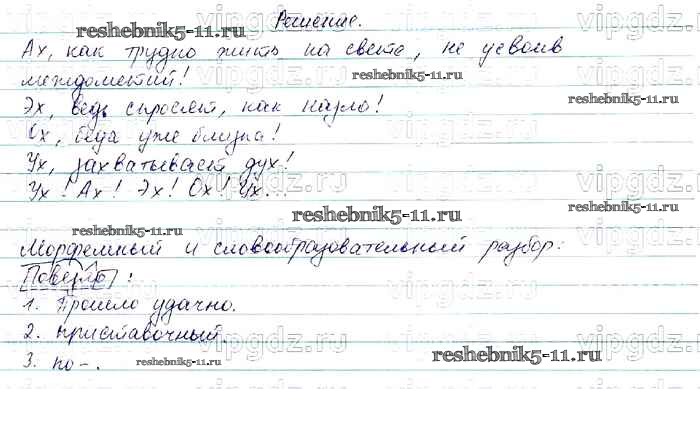 Решение.
Ах, как трудно жить на свете, не усвоив
междометий!
Эх, ведь спросят, как назло!
Ох, беда уже близка!
Ух, захватывает дух!
Ух! Ах! Эх! Ох! Ух...
Морфемный и словообразовательный разбор:
Повезло:
1. Прошло удачно.
2. Приставочный.
3. по-.
reshebnik5-11.ru
reshebnik5-11.ru
reshebnik5-11.ru
reshebnik5-11.ru
reshebnik5-11.ru
reshebnik5-11.ru
reshebnik5-11.ru
vipgdz.ru
vipgdz.ru
vipgdz.ru
vipgdz.ru
vipgdz.ru
vipgdz.ru
vipgdz.ru
vipgdz.ru